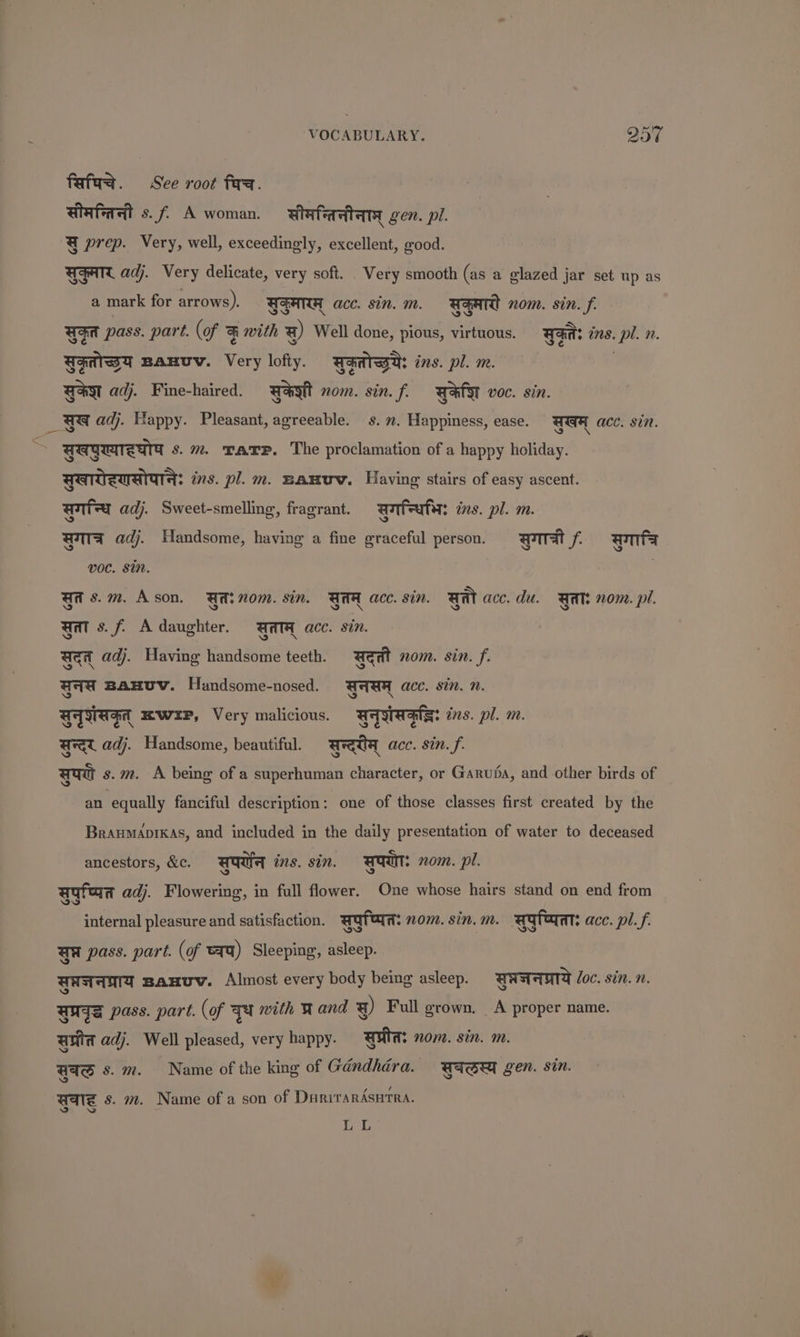 VOCABULARY. 257
सिषिचे. See root षिच.
सीमन्तिनी s. f. A woman. सीमन्तिनीनाम् gen. pl.
सु prep. Very, well, exceedingly, excellent, good.
सुकुमार adj. Very delicate, very soft. Very smooth (as a glazed jar set up as
a mark for arrows). सुकुमारम् acc. sin. m. सुकुमारी nom. sin. f.
सुकृत pass. part. (of कृ with सु) Well done, pious, virtuous. सुकृतैः ins. pl. n.
सुकृतोच्छ्रय BAHUV. Very lofty. सुकृतोच्छ्रयैः ins. pl. m.
सुकेश adj. Fine-haired. सुकेशी nom. sin. f. सुकेशि voc. sin.
सुख adj. Happy. Pleasant, agreeable. s. n. Happiness, ease. सुखम् acc. sin.
सुखपुण्याहघोष s. m. TATP. The proclamation of a happy holiday.
सुखारोहणसोपानैः ins. pl. m. BAHUV. Having stairs of easy ascent.
सुगन्धि adj. Sweet-smelling, fragrant. सुगन्धिभिः ins. pl. m.
सुगात्र adj. Handsome, having a fine graceful person. सुगात्री f. सुगात्रि
voc. sin.
सुत s. m. A son. सुतः nom. sin. सुतम् acc. sin. सुतौ acc. du. सुताः nom. pl.
सुता s. f. A daughter. सुताम् acc. sin.
सुदत् adj. Having handsome teeth. सुदती nom. sin. f.
सुनस BAHUV. Handsome-nosed. सुनसम् acc. sin. n.
सुनृशंसकृत् KWIP, Very malicious. सुनृशंसकृद्भिः ins. pl. m.
सुन्दर adj. Handsome, beautiful. सुन्दरीम् acc. sin. f.
सुपर्ण s. m. A being of a superhuman character, or GARUDA, and other birds of
an equally fanciful description: one of those classes first created by the
BRAHMÁDIKAS, and included in the daily presentation of water to deceased
ancestors, &c. सुपर्णेन ins. sin. सुपर्णाः nom. pl.
सुपुष्पित adj. Flowering, in full flower. One whose hairs stand on end from
internal pleasure and satisfaction. सुपुष्पितः nom. sin. m. सुपुष्पिताः acc. pl. f.
सुप्त pass. part. (of ष्वप) Sleeping, asleep.
सुप्तजनप्राय BAHUV. Almost every body being asleep. सुप्तजनप्राये loc. sin. n.
सुप्रवृद्ध pass. part. (of वृध with प्र and सु) Full grown. A proper name.
सुप्रीत adj. Well pleased, very happy. सुप्रीतः nom. sin. m.
सुबल s. m. Name of the king of Gándhára. सुबलस्य gen. sin.
सुबाहु s. m. Name of a son of DHRITARÁSHTRA.
L L